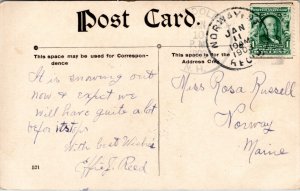 Post Card.
This space may be used for Correspondence
This space is for
Address On
It is snowing out
now & expect we
will have quite a lot
before it stops
With best Wishes
Effie S. Reed
Miss Rosa Russell
Norway
Maine
NORWAY
JAN
11
REC'D
501